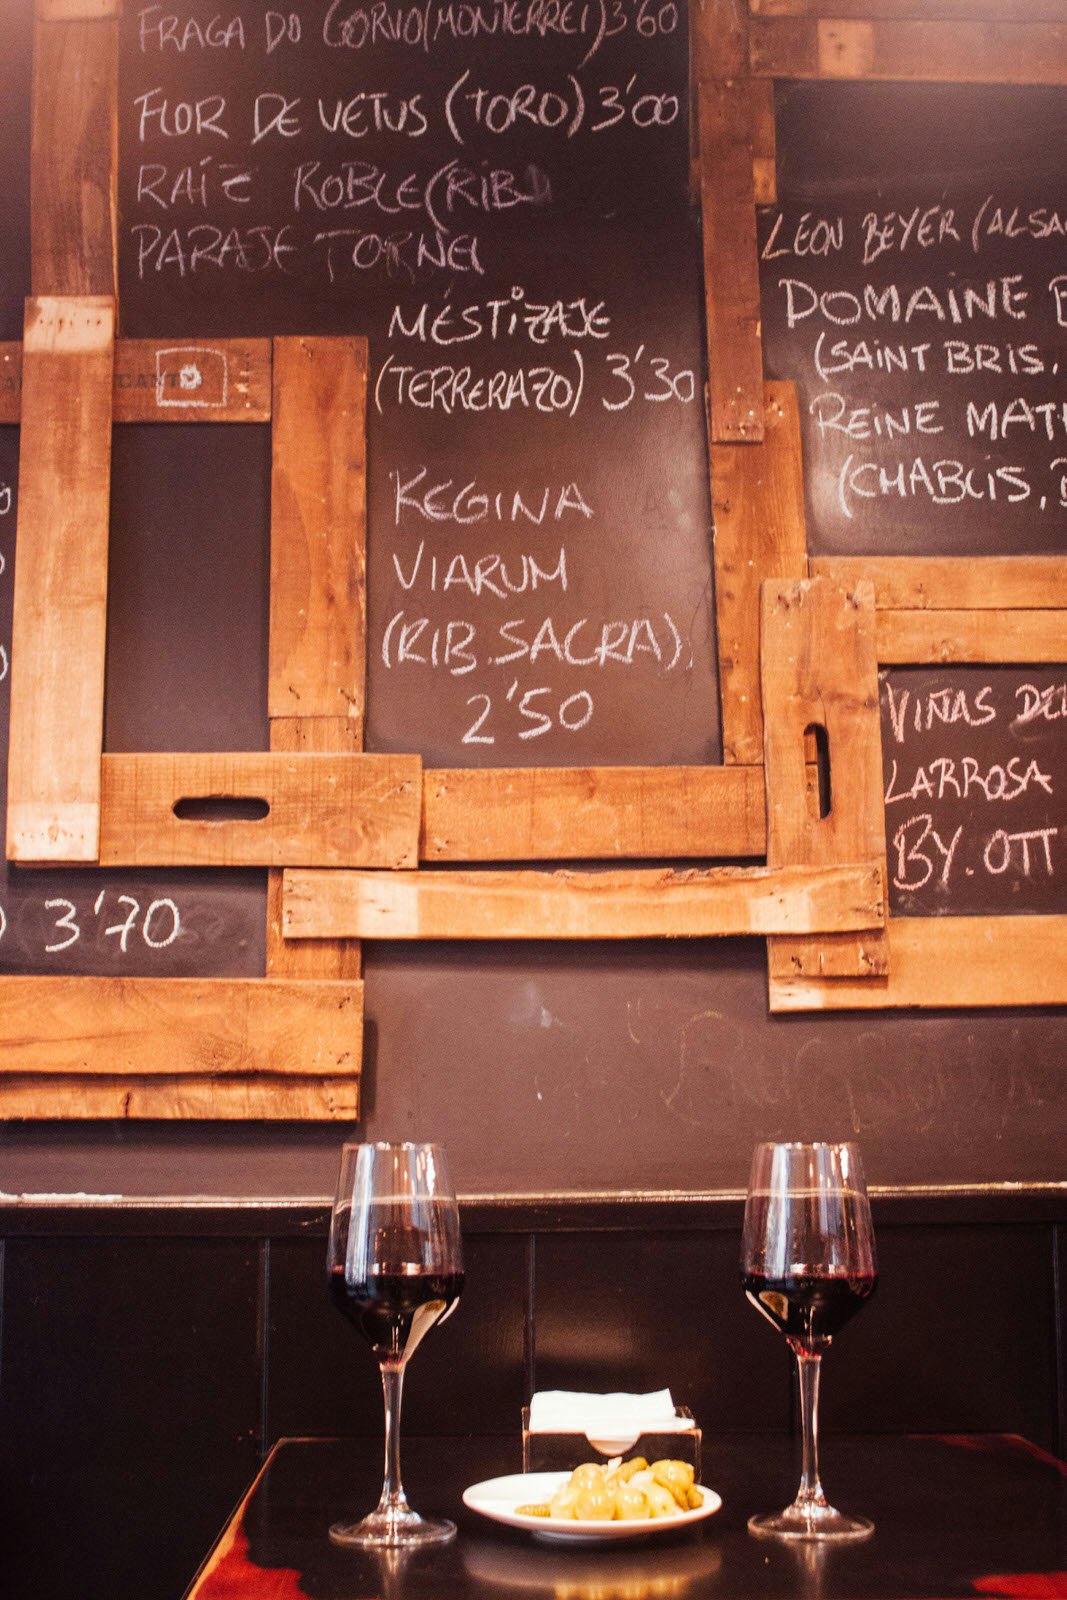 FRAGA DO CORVO (MONTERREI) 3'60
FLOR DE VETUS (TORO) 3'00
RAÍZ ROBLE (RIB
PARAJE TORNEL
MESTIZAJE
(TERRERAZO) 3'30
REGINA
VIARUM
(RIB. SACRA)
2'50
3'70
LÉON BEYER (ALSA
DOMAINE B
(SAINT BRIS,
REINE MATH
(CHABLIS, B
VIÑAS DEL
LARROSA
BY. OTT